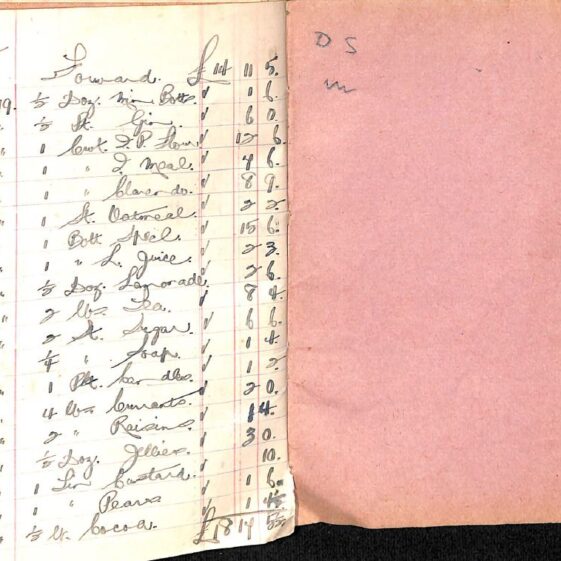 Forward. £14 11 5.
19. ½ Doz. Min Botts. √ 1 6.
" ½ Pt. Gin. √ 6 0.
" 1 Cwt. I. P. Flour. √ 12 6.
" 1 " I. Meal. √ 4 6.
" 1 " Clarendo. √ 8 9.
" 1 St. Oatmeal. √ 2 2.
" 1 Bott Specl. √ 15 6.
" 1 " L. Juice. √ 2 3.
" ½ Doz. Lemonade. √ 2 6.
" 2 lbs. Tea. √ 8 4.
" 2 St. Sugar. √ 6 6.
" ¼ " Soap. √ 1 4.
" 1 Pkt. Candles. √ 1 2.
" 4 lbs Currants. √ 2 0.
" 2 " Raisins √ 1 4.
" ½ Doz. Jellies. √ 3 0.
" 1 Tin Custard. √ 10.
" 1 " Pears √ 1 6.
½ lb. Cocoa. √ 1 4½
£18 14 5½
D S